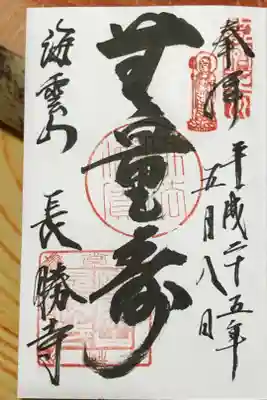 奉拝
平成二十五年
五月八日
無量壽
海雲山
長勝寺